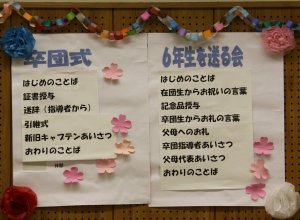 卒団式
はじめのことば
証書授与
送辞（指導者から）
引継式
新旧キャプテンあいさつ
おわりのことば
6年生を送る会
はじめのことば
在団生からお祝いの言葉
記念品授与
卒団生からお礼の言葉
父母へのお礼
卒団指導者あいさつ
父母代表あいさつ
おわりのことば